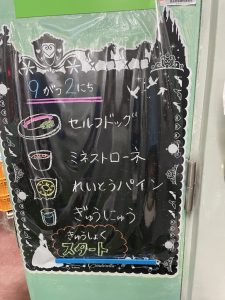 9がつ2にち
セルフドッグ
ミネストローネ
れいとうパイン
ぎゅうにゅう
きゅうしょく
スタート